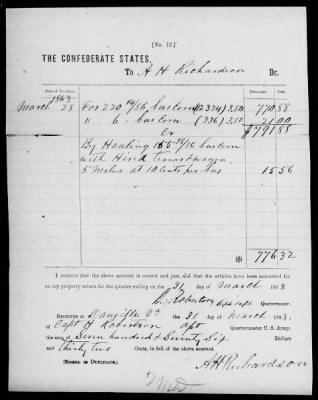 [No. 12.]
THE CONFEDERATE STATES,
To A H Richardson Dr.
Date of Purchase. Dollars Cts.
1863
March 28 For 220 14/56 bus corn (12334) 3,50 770 88
" 6 bus corn (336) 3,50 21 00
Cr $791 88
By Hauling 155 35/56 bus corn
with Hired teams & wagon
5 Miles at 10 Cents per bus 15 56
776 32
I certify that the above account is correct and just, and that the articles have been accounted for
on my property return for the quarter ending on the 31 day of March 1863
H. Robertson Capt & a q m Quartermaster.
Received at Danville Va the 31 day of March 1863,
of Capt H Robertson a q m Quartermaster C. S. Army,
the sum of Seven hundred & Seventy Six Dollars
and thirty two Cents, in full of the above account.
(Signed in Duplicate.) A H Richardson